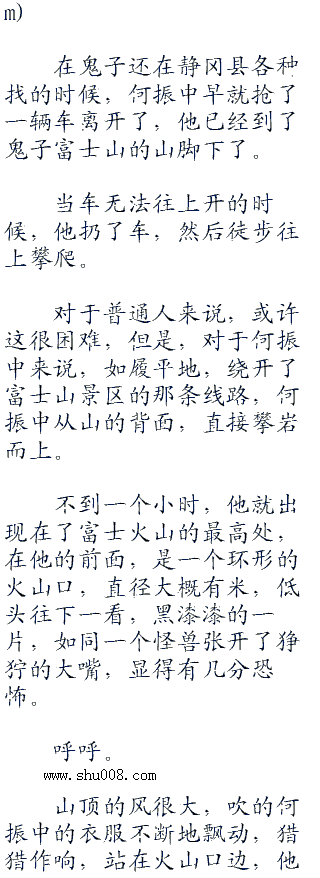 m)
在鬼子还在静冈县各种
找的时候，何振中早就抢了
一辆车离开了，他已经到了
鬼子富士山的山脚下了。
当车无法往上开的时
候，他扔了车，然后徒步往
上攀爬。
对于普通人来说，或许
这很困难，但是，对于何振
中来说，如履平地，绕开了
富士山景区的那条线路，何
振中从山的背面，直接攀岩
而上。
不到一个小时，他就出
现在了富士火山的最高处，
在他的前面，是一个环形的
火山口，直径大概有米，低
头往下一看，黑漆漆的一
片，如同一个怪兽张开了狰
狞的大嘴，显得有几分恐
怖。
呼呼。
www.shu008.com
山顶的风很大，吹的何
振中的衣服不断地飘动，猎
猎作响，站在火山口边，他